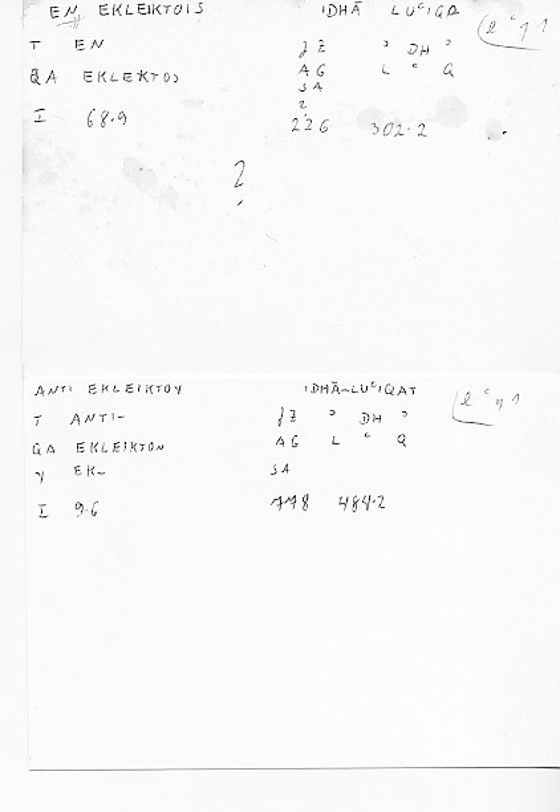 EN EKLEIKTOIS IDHĀ LUʿIQA
T EN JZ ʾ DH ʾ
QA EKLEKTOS AG L ʿ Q
SA
2
I 68.9 226 302.2
?
ANTI EKLEIKTOY IDHĀ-LUʿIQAT
T ANTI- JZ ʾ DH ʾ
QA EKLEIKTON AG L ʿ Q
Y EK- SA
I 9.6 778 484.2